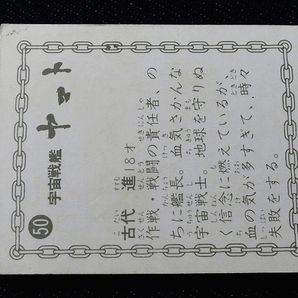 50 宇宙戦艦 ヤマト
古代 進 18才
作戦・戦闘の責任者、の
ちに艦長。血気さかんな
宇宙戦士。地球を守りぬ
く信念に燃えているが、
血の気が多すぎて、時々
失敗をする。